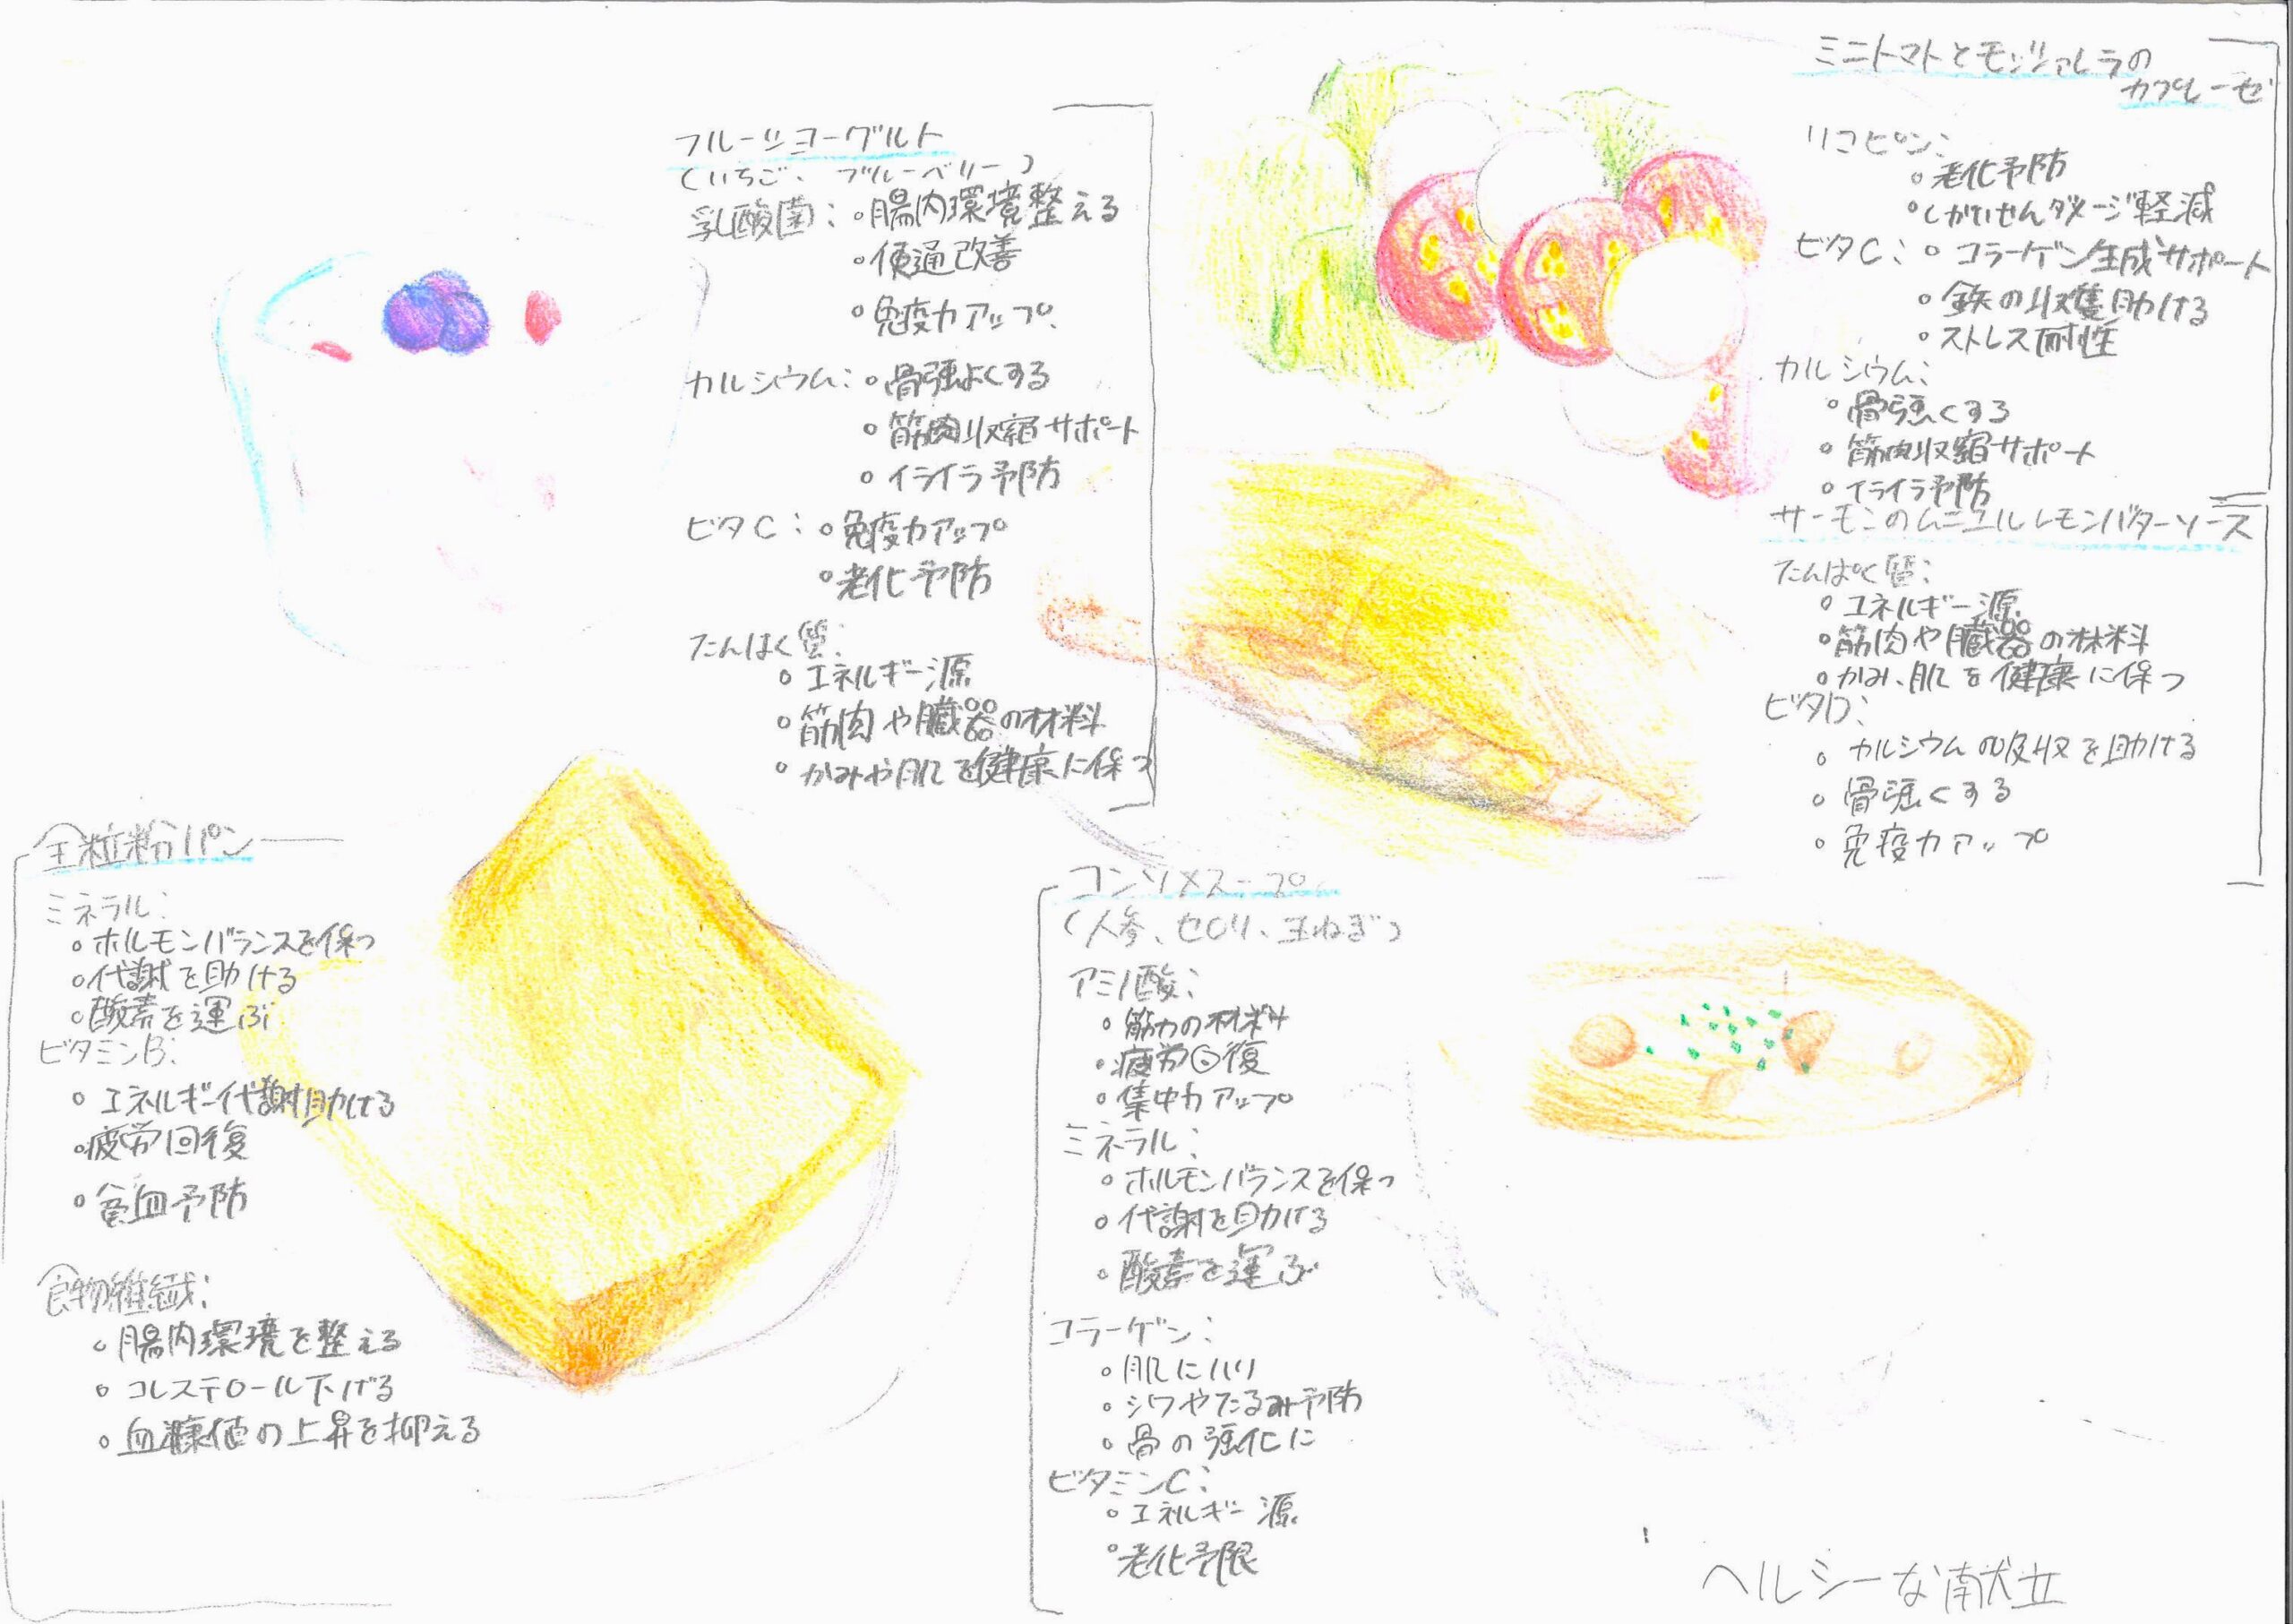 フルーツヨーグルト
(いちご、ブルーベリー)
乳酸菌:。腸内環境整える
。便通改善
。免疫力アップ
カルシウム:。骨強よくする
。筋肉収縮サポート
。イライラ予防
ビタC:。免疫力アップ
。老化予防
たんぱく質:
。エネルギー源
。筋肉や臓器の材料
。かみや肌を健康に保つ
ミニトマトとモッツァレラの
カプレーゼ
リコピン:
。老化予防
。しがいせんダメージ軽減
ビタC:。コラーゲン生成サポート
。鉄の収隻助ける
。ストレス耐性
カルシウム:
。骨強くする
。筋肉収縮サポート
。イライラ予防
サーモンのムニエルレモンバターソース
たんぱく質:
。エネルギー源
。筋肉や臓器の材料
。かみ、肌を健康に保つ
ビタD:
。カルシウムの吸収を助ける
。骨強くする
。免疫力アップ
全粒粉パン
ミネラル:
。ホルモンバランスを保つ
。代謝を助ける
。酸素を運ぶ
ビタミンB:
。エネルギー代謝助ける
。疲労回復
。貧血予防
食物繊維:
。腸内環境を整える
。コレステロール下げる
。血糖値の上昇を抑える
コンソメスープ
(人参、セロリ、玉ねぎ)
アミノ酸:
。筋力の材料
。疲労回復
。集中力アップ
ミネラル:
。ホルモンバランスを保つ
。代謝を助ける
。酸素を運ぶ
コラーゲン:
。肌にハリ
。シワやたるみ予防
。骨の強化に
ビタミンC:
。エネルギー源
。老化予限
ヘルシーな献立